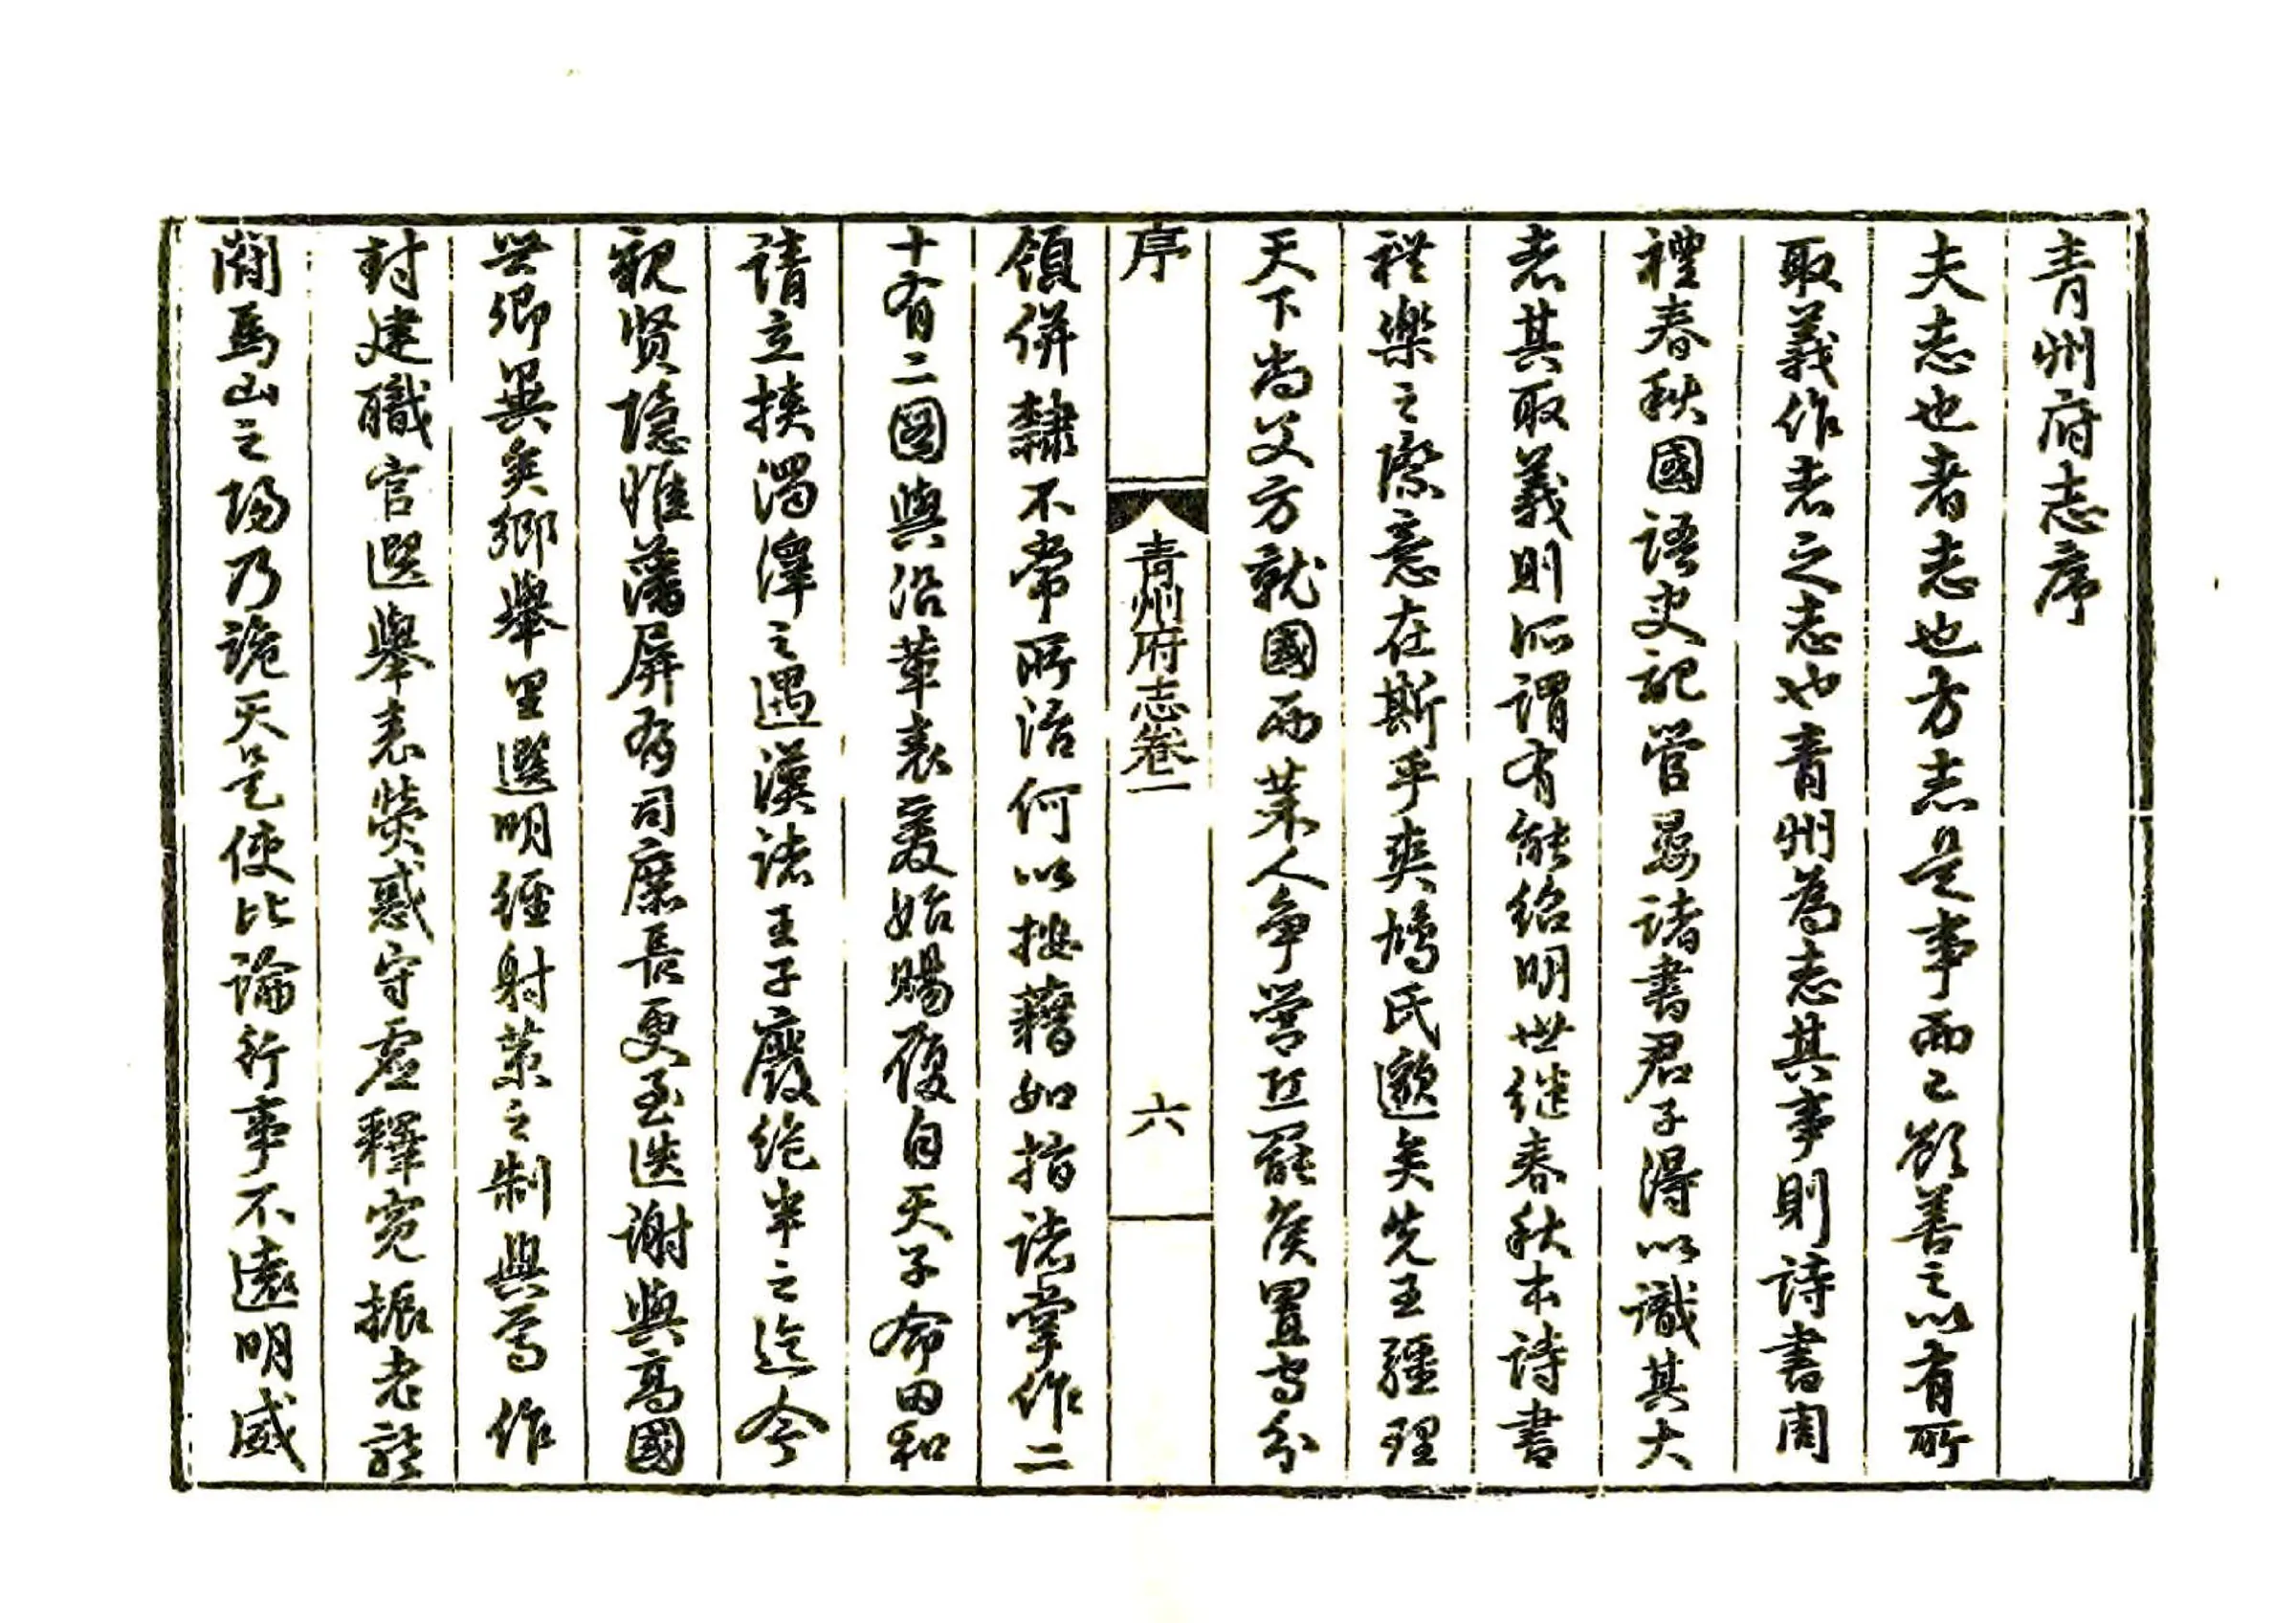 青州府志序
夫志也者志也方志是事而已欲善之以有所
取義作者之志也青州為志其事則詩書周
禮春秋國語史記管晏諸書君子得以識其大
者其取義則所謂有能紹明世继春秋本诗書
禮樂之際意在斯乎爽鳩氏邈矣先王疆理
天下尚父方就國而萊人争營丘罷侯置守分
領併隸不常所治何以按籍如指诸掌作二
序
青州府志卷一
六
十有二國與沿革表爰始賜履自天子命田和
请立挾濁澤之遇漢诸王子廢绝半之迄今
親贤隐惟藩屏有司庶長更至迭谢與高國
世卿異矣鄉舉里選明經射策之制與焉作
封建職官選舉表熒惑守虚釋冤振老
闕馬山之陽乃詭天是使比論行事不遠明威